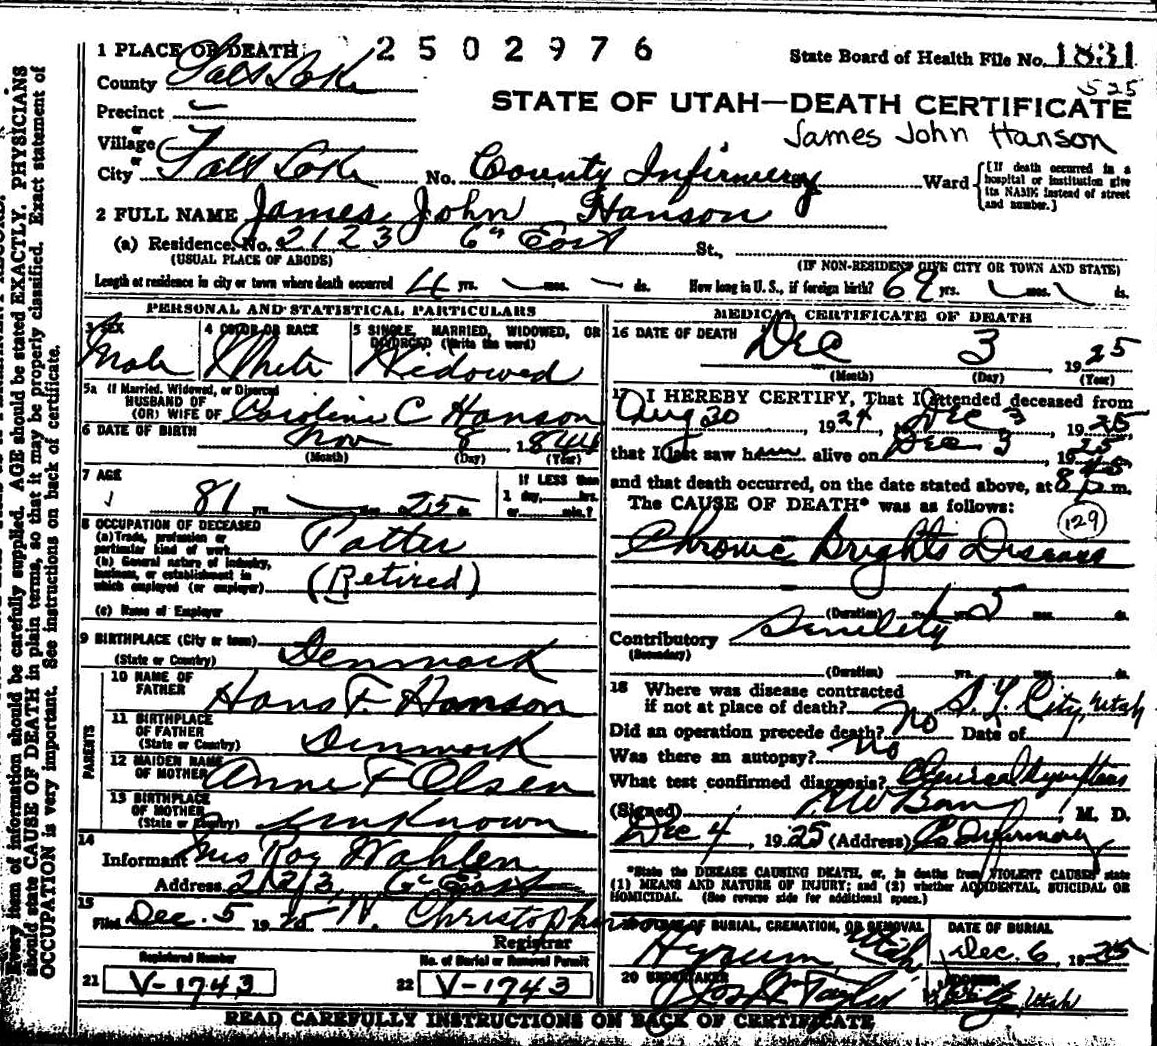 1 PLACE OF DEATH 2502976 State Board of Health File No. 1831
County Salt Lake 525
STATE OF UTAH—DEATH CERTIFICATE
Precinct
James John Hanson
or
Village
or
City Salt Lake No. County Infirmery Ward
[If death occurred in a hospital or institution give its NAME instead of street and number.]
2 FULL NAME James John Hanson
(a) Residence. No. 2123 6" East St.,
(USUAL PLACE OF ABODE) (IF NON-RESIDENT GIVE CITY OR TOWN AND STATE)
Length of residence in city or town where death occurred 4 yrs. mos. ds. How long in U. S., if foreign birth? 69 yrs. mos. ds.
PERSONAL AND STATISTICAL PARTICULARS
3 SEX 4 COLOR OR RACE 5 SINGLE, MARRIED, WIDOWED, OR
DIVORCED (Write the word)
Male White Widowed
5a If Married, Widowed, or Divorced
HUSBAND OF
(OR) WIFE OF Caroline C Hanson
6 DATE OF BIRTH Nov 8, 1844
(Month) (Day) (Year)
7 AGE If LESS than
81 yrs. mos. 25 ds. 1 day, hrs.
or min.?
8 OCCUPATION OF DECEASED
(a) Trade, profession or
particular kind of work Potter
(b) General nature of industry,
business, or establishment in
which employed (or employer) (Retired)
(c) Name of Employer
9 BIRTHPLACE (City or town)
(State or Country) Denmark
PARENTS
10 NAME OF
FATHER Hans F. Hanson
11 BIRTHPLACE
OF FATHER
(State or Country) Denmark
12 MAIDEN NAME
OF MOTHER Anne F Olsen
13 BIRTHPLACE
OF MOTHER
(State or Country) unknown
14
Informant Mrs Roy Wahlen
Address 2123, 6" East
15
Filed Dec. 5 1925
Registrar
Registered Number No. of Burial or Removal Permit
21 V-1743 22 V-1743
MEDICAL CERTIFICATE OF DEATH
16 DATE OF DEATH Dec 3 1925
(Month) (Day) (Year)
17 I HEREBY CERTIFY, That I attended deceased from
Aug 30, 1924, Dec 3, 1925
that I last saw him alive on Dec 3, 1925
and that death occurred, on the date stated above, at 8 45 p m.
The CAUSE OF DEATH* was as follows:
129
Chronic Brights Disease
(Duration) 1 yrs. 5 mos. ds.
Contributory Senility
(Secondary)
(Duration) yrs. mos. ds.
18 Where was disease contracted
if not at place of death? S. L. City, Utah
Did an operation precede death? No Date of
Was there an autopsy? No
What test confirmed diagnosis? Clinical Symptoms
(Signed) M. D.
Dec 4 1925 (Address) Co Infirmary
*State the DISEASE CAUSING DEATH, or, in deaths from VIOLENT CAUSES state
(1) MEANS AND NATURE OF INJURY; and (2) whether ACCIDENTAL, SUICIDAL OR
HOMICIDAL. (See reverse side for additional space.)
OF BURIAL, CREMATION, OR REMOVAL DATE OF BURIAL
Hyrum, Utah Dec. 6, 1925
20 UNDERTAKER
Jos. Taylor Utah
READ CAREFULLY INSTRUCTIONS ON BACK OF CERTIFICATE
Every item of information should be carefully supplied. AGE should be stated EXACTLY. PHYSICIANS
should state CAUSE OF DEATH in plain terms, so that it may be properly classified. Exact statement of
OCCUPATION is very important. See instructions on back of certificate.